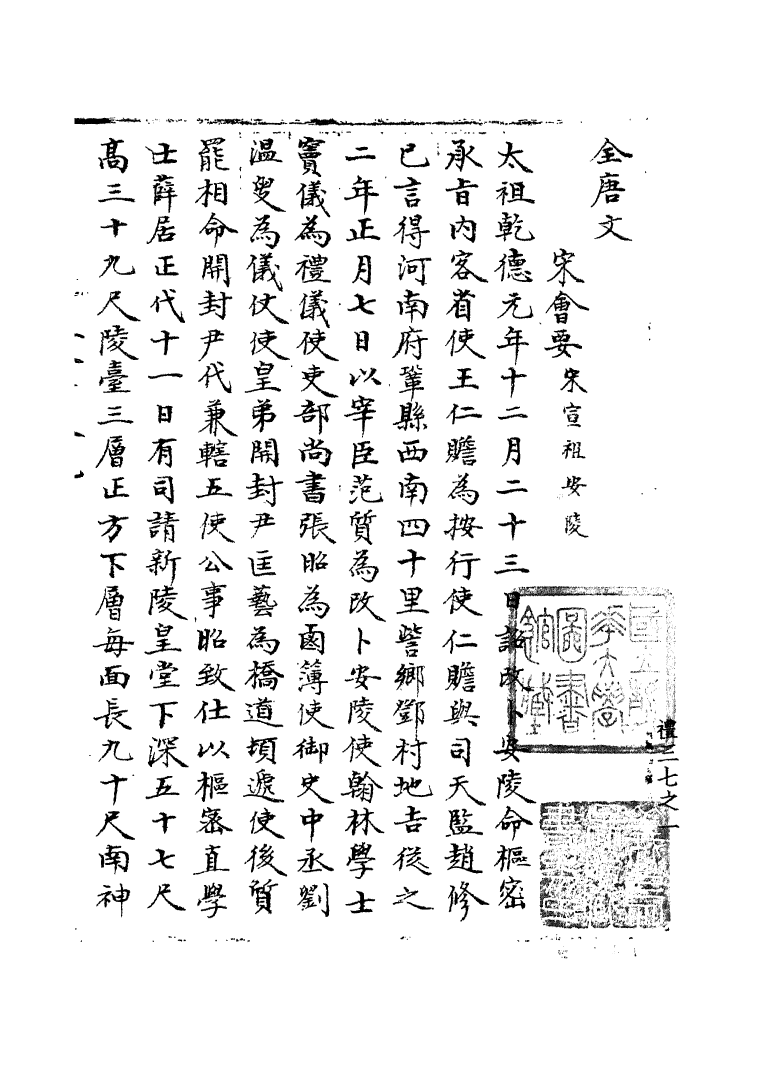 全唐文
宋會要 宋宣祖安陵
太祖乾德元年十二月二十三日詔改卜安陵命樞密
承旨內客省使王仁贍為按行使仁贍與司天監趙修
已言得河南府鞏縣西南四十里訾鄉鄧村地吉從之
二年正月七日以宰臣范質為改卜安陵使翰林學士
竇儀為禮儀使吏部尚書張昭為鹵簿使御史中丞劉
温叟為儀仗使皇弟開封尹匡藝為橋道頓遞使後質
罷相命開封尹代兼轄五使公事昭致仕以樞密直學
士薛居正代十一日有司請新陵皇堂下深五十七尺
高三十九尺陵臺三層正方下層每面長九十尺南神
禮三七之一